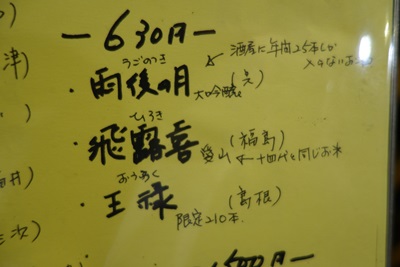 津)
井)
次)
ー630円ー
うごのつき
・雨後の月 大吟醸
酒屋に年間25本しか
入らない
ひろき
・飛露喜 愛山 (福島)
← 十四代と同じお米
おうろく
・王祿 (島根)
限定210本.
00円ー